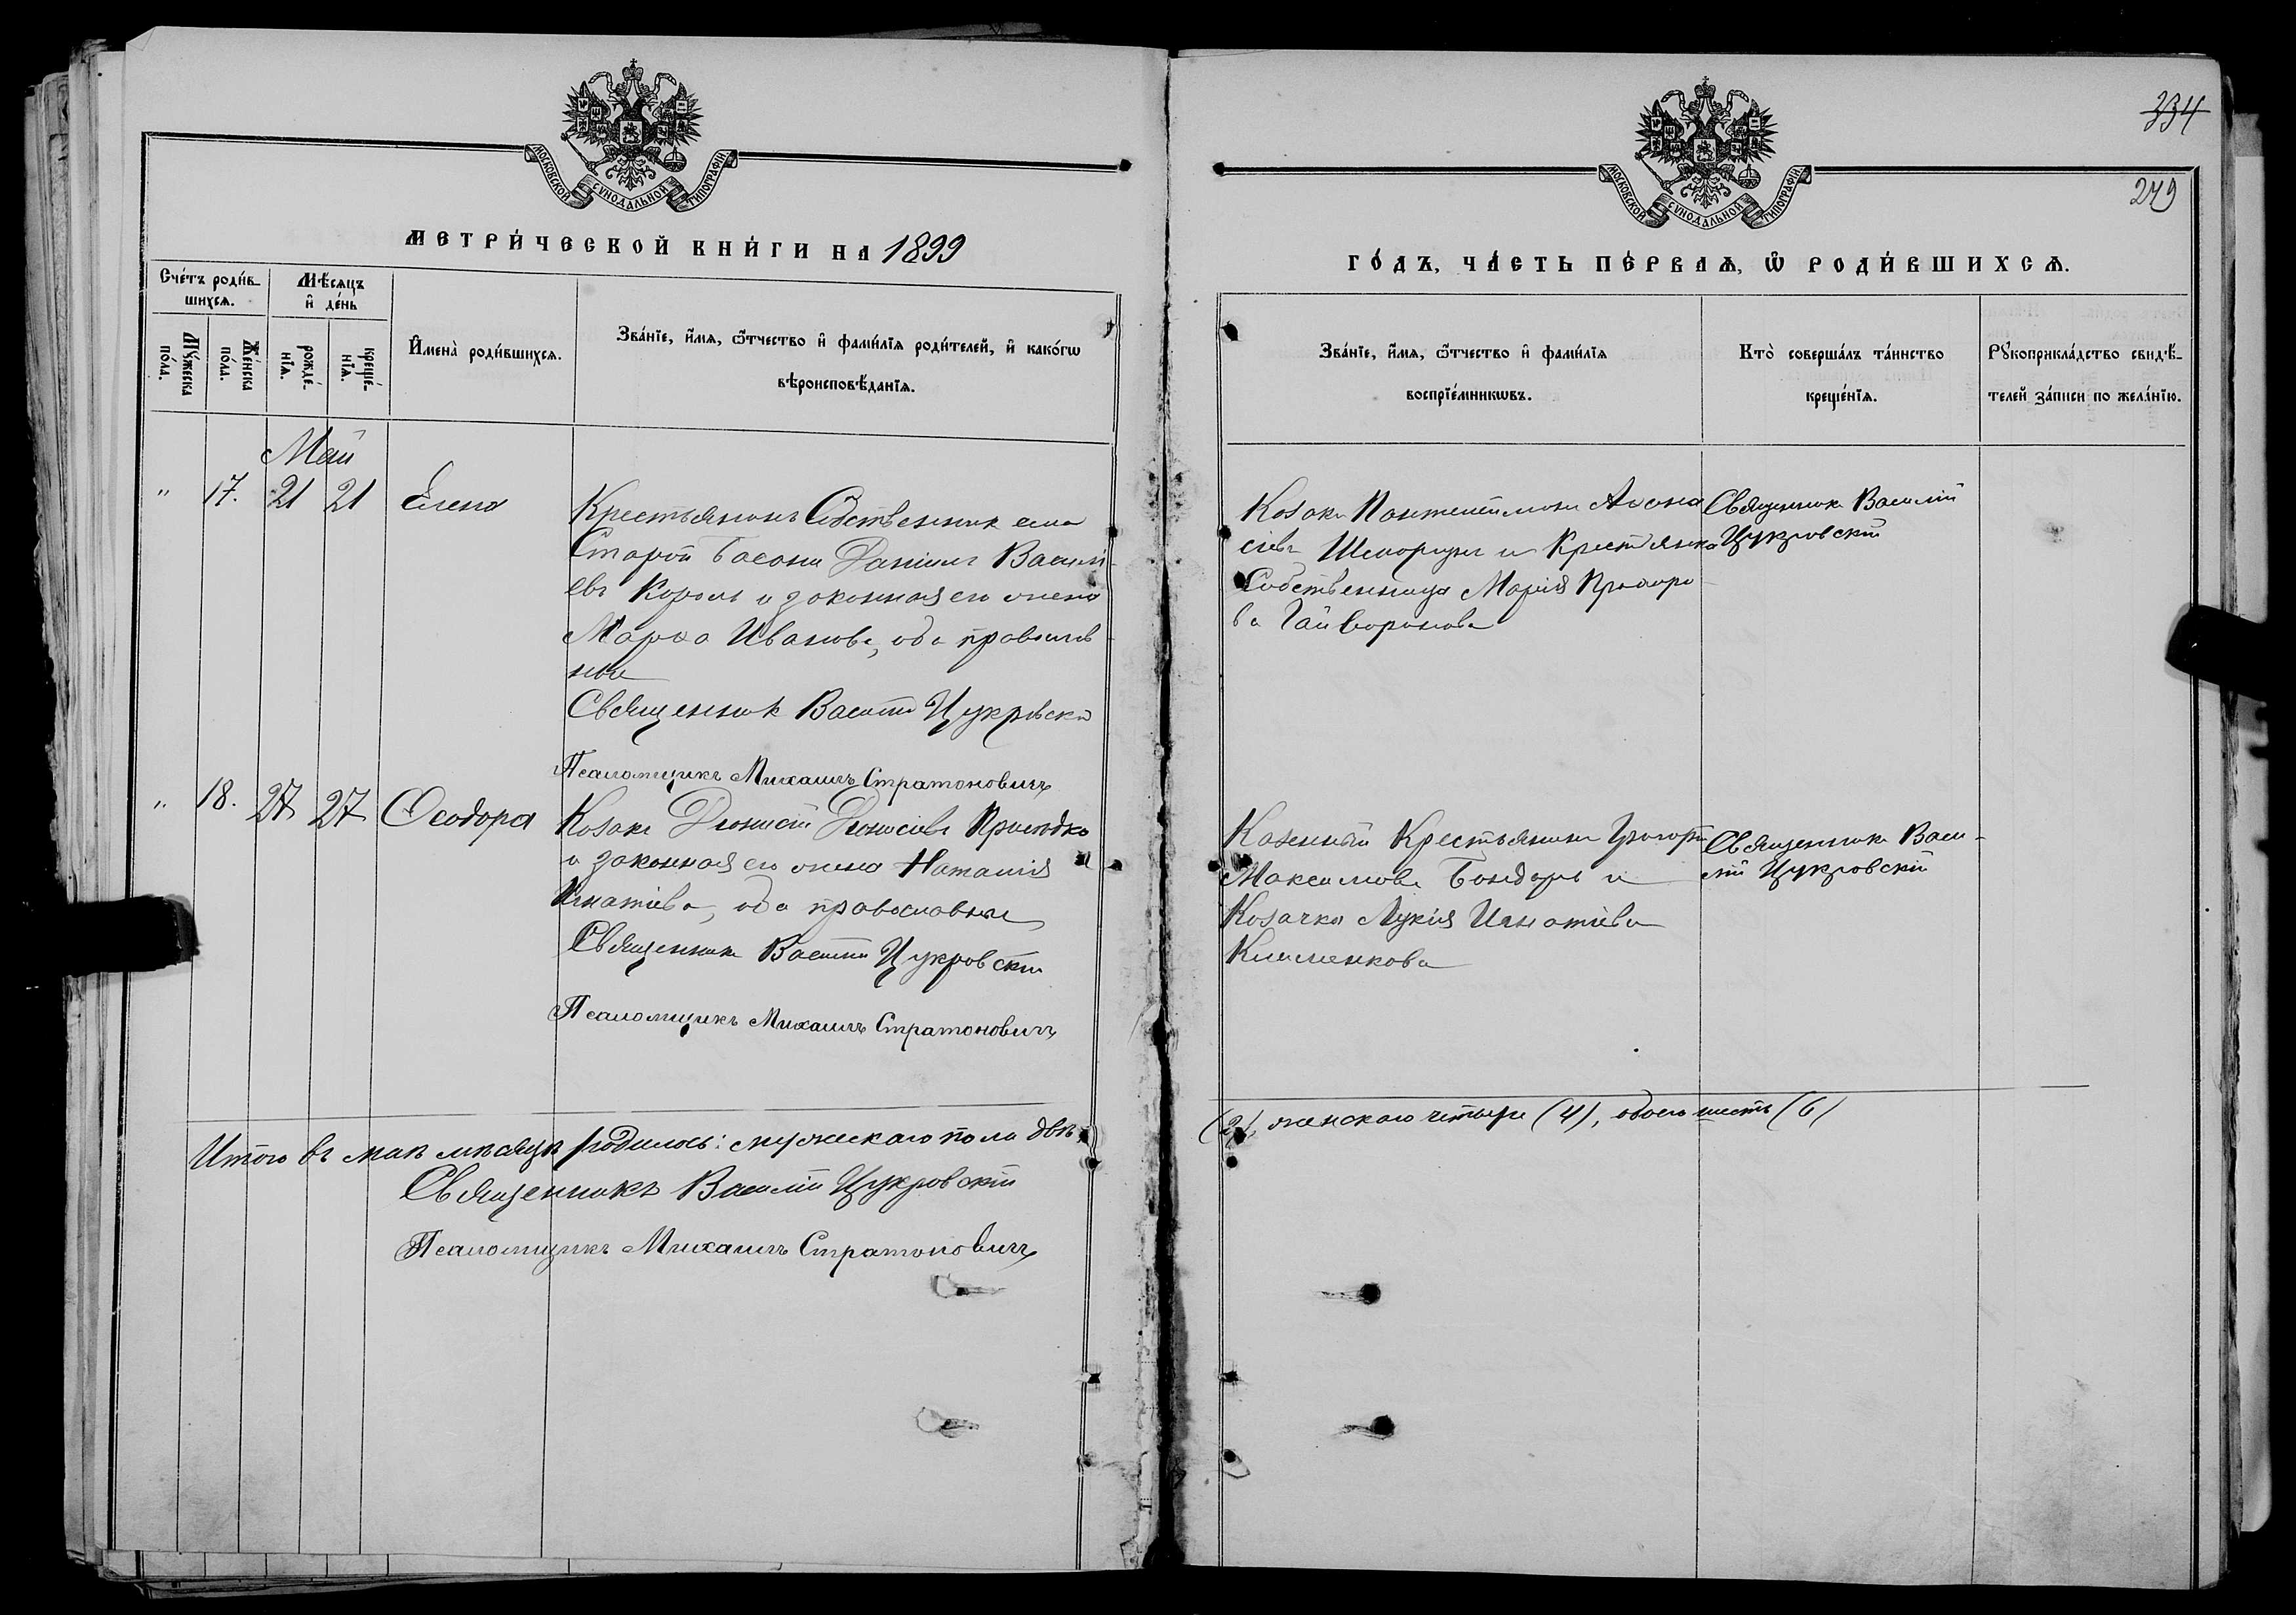 334
279
МОСКОВСКОЙ СѴНОДАЛЬНОЙ ТИПОГРАФІИ
МОСКОВСКОЙ СѴНОДАЛЬНОЙ ТИПОГРАФІИ
МЕТРИ́ЧЕСКОЙ КНИ́ГИ НА 1899
ГО́ДЪ, ЧА́СТЬ ПЕ́РВАѦ, Ѡ РОДИ́ВШИХСѦ.
Сче́тъ роди́в-
шихсѧ.
Мѣ́сѧцъ
и҆ де́нь
Мꙋ́жеска
по́ла.
Же́нска
по́ла.
рожде́-
нїѧ.
креще́-
нїѧ.
И҆мена̀ роди́вшихсѧ.
Зва́нїе, и҆́мѧ, ѻ҆́тчество и҆ фами́лїѧ роди́телей, и҆ како́гѡ
вѣроисповѣ́данїѧ.
Зва́нїе, и҆́мѧ, ѻ҆́тчество и҆ фами́лїѧ
воспрїе́мникѡвъ.
Кто̀ соверша́лъ та́инство
креще́нїѧ.
Рꙋкоприкла́дство свидѣ́-
телей за́писи по жела́нїю.
Май
" 17. 21 21 Елена
Крестьянинъ Собственник села
Старой Басани Даніилъ Василі-
евъ Король и законная его жена
Марѳа Иванова, оба православ-
ные
Священник Василій Цукровскій
Псаломщикъ Михаилъ Стратоновичъ
Козакъ Пантелеймонъ Аѳана
сіевъ и Крестьянка
Собственница Марія Прохоро-
ва Гайворонова
Священникъ Василій
Цукровскій
" 18. 27 27 Ѳеодора
Козакъ Діонисій Діонисіевъ Приходко
и законная его жена Наталія
Игнатіева, оба православные
Священникъ Василій Цукровскій
Псаломщикъ Михаилъ Стратоновичъ
Казенный Крестьянинъ Григорій
Максимовъ Бондарь и
Козачка Лукія Игнатіева
Клименкова
Священникъ Васи-
лій Цукровскій
Итого въ маѣ мѣсяцѣ родилось: мужескаго пола два
(2), женскаго четыре (4), обоего шесть (6)
Священникъ Василій Цукровскій
Псаломщикъ Михаилъ Стратоновичъ